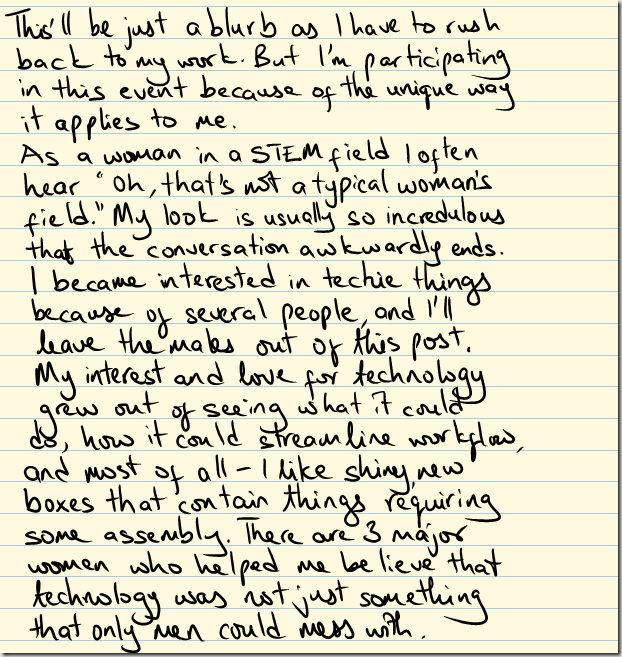 This'll be just a blurb as I have to rush
back to my work. But I'm participating
in this event because of the unique way
it applies to me.
As a woman in a STEM field I often
hear "Oh, that's not a typical woman's
field." My look is usually so incredulous
that the conversation awkwardly ends.
I became interested in techie things
because of several people, and I'll
leave the males out of this post.
My interest and love for technology
grew out of seeing what it could
do, how it could streamline workflow,
and most of all - I like shiny, new
boxes that contain things requiring
some assembly. There are 3 major
women who helped me believe that
technology was not just something
that only men could mess with.